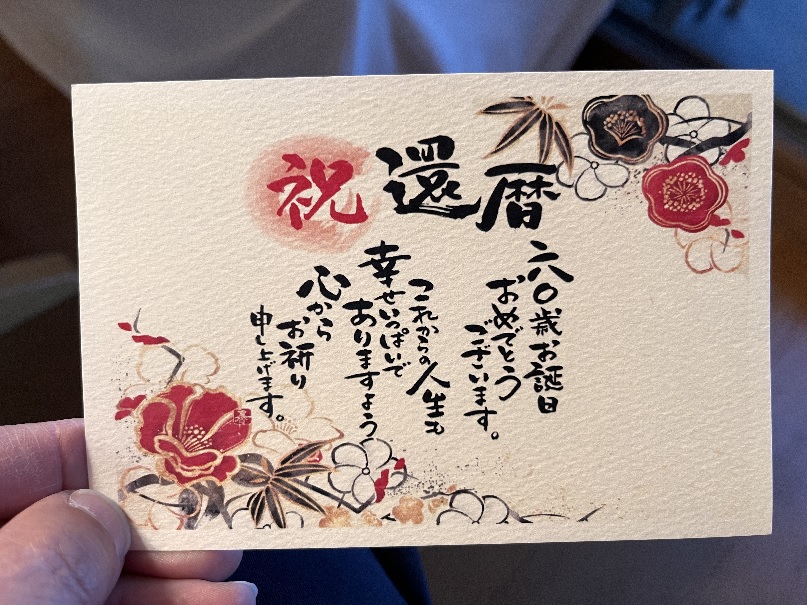 祝 還暦
六〇歳お誕生日
おめでとう
ございます。
これからの人生も
幸せいっぱいで
ありますよう
心から
お祈り
申し上げます。